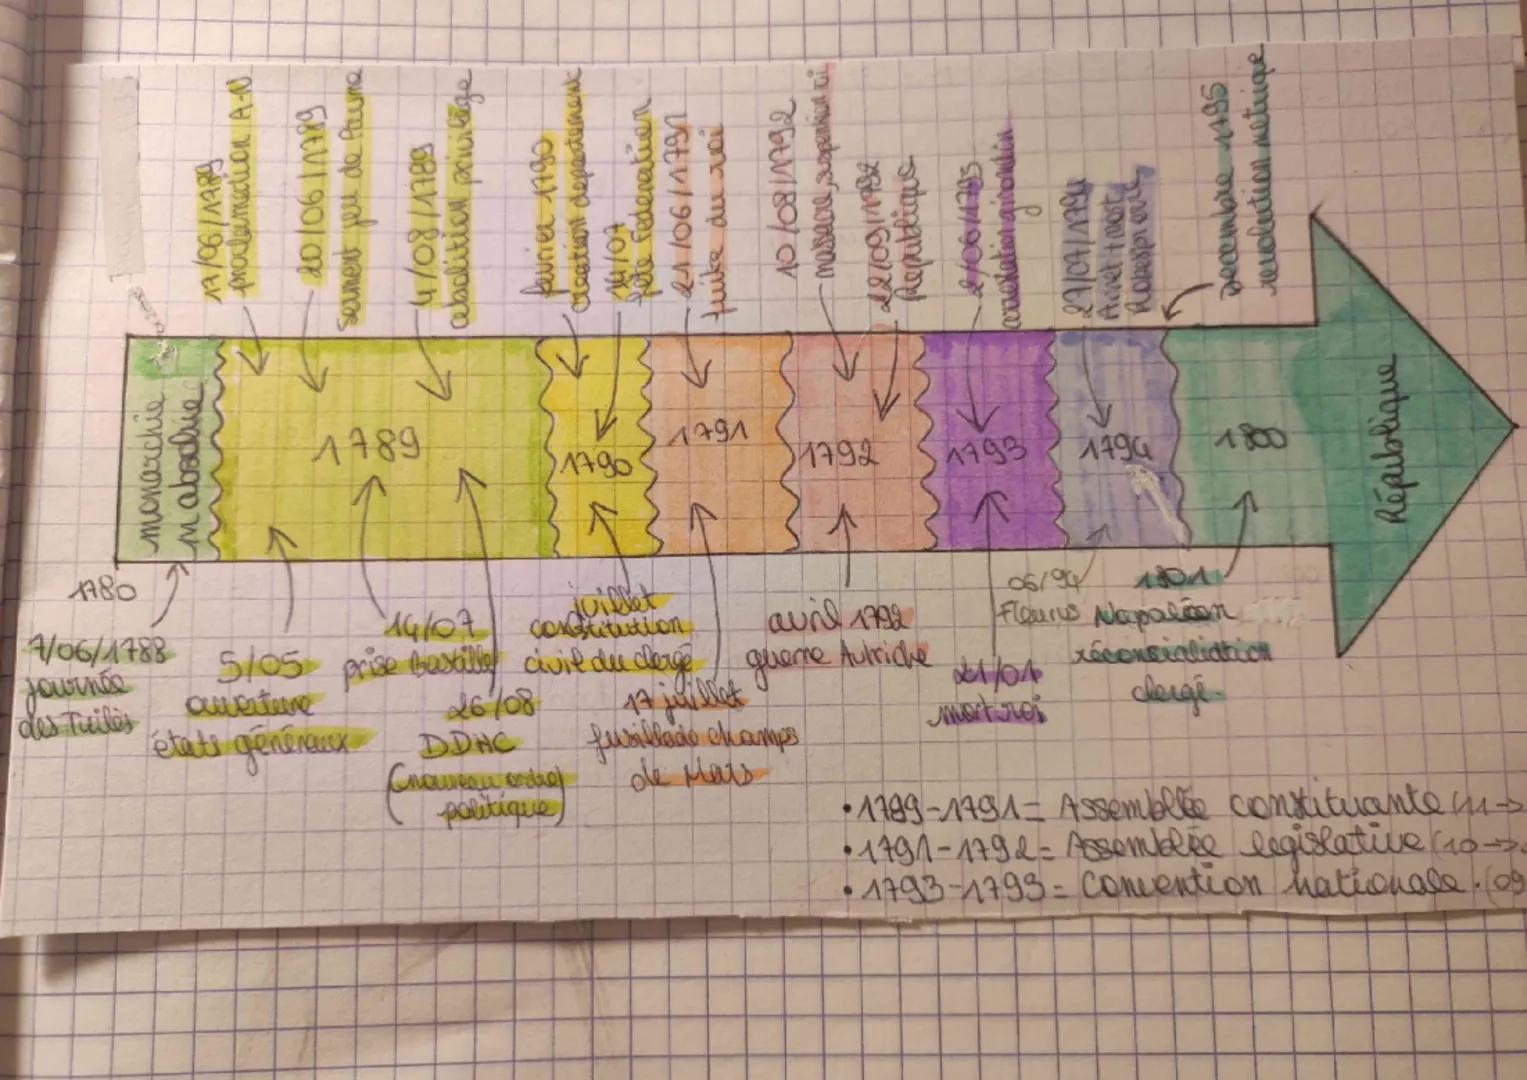 17/06/1789
proclamation A-N
20/06/1789
serment jeu de Paume
4/08/1789
abolition privilège
février 1790
création département
14/07
fête Fédération
21/06/1791
fuite du roi
10/08/1792
massacre, suspension roi
22/09/1792
République
2/06/1793
arrestation girondin
27/07/1794
Arret + mort
Robespierre
Décembre 1795
révolution métrique
monarchie
absolue
1789
1790
1791
1792
1793
1794
1800
République
1780
7/06/1788
journée
des Tuiles
5/05
ouverture
états généraux
14/07
prise Bastille
26/08
DDHC
(nouveau ordre
politique)
juillet
constitution
civil du clergé
17 juillet
fusillade champs
de Mars
avril 1792
guerre Autriche
21/01
mort roi
06/94
Fleurus
1801
Napoléon
réconcialiation
clergé.
• 1789-1791= Assemblée constituante (11→
• 1791-1792= Assemblée legislative (10→
• 1793-1793= Convention nationale. (09